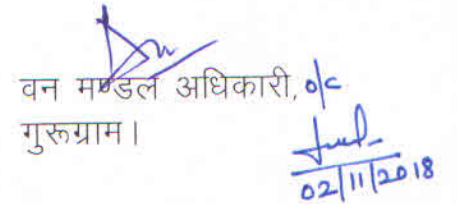 वन मण्डल अधिकारी, o/c
गुरूग्राम।
02/11/2018